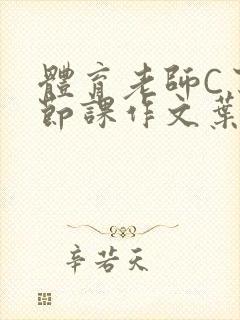 體育老師C
節課作文葉
辛若天